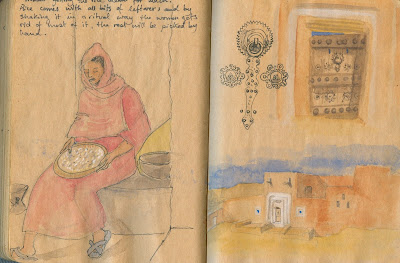 getting the rice clean for
Rice comes with all bits of leftovers and by
shaking it in a ritual the woman gets
rid of most of it, the rest will be picked by
hand.